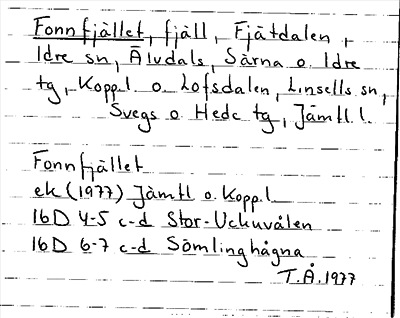 Fonnfjället, fjäll, Fjätdalen,
Idre sn, Älvdals, Särna o Idre
tg, Koppl. o Lofsdalen, Linsells sn,
Svegs o Hede tg, Jämtl.l.
Fonnfjället
ek (1977) Jämtl o. Koppl
16D 4-5 c-d Stor-Uckuvålen
16D 6-7 c-d Sömlinghågna
T.Å.1977